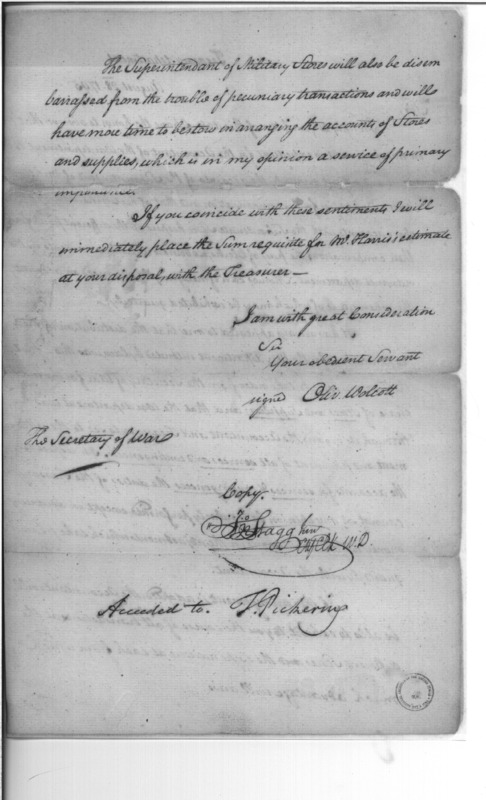 The Superintendant of Military Stores will also be disem
barrassed from the trouble of pecuniary transactions and will
have more time to bestow in arranging the accounts of Stores
and supplies, which is in my opinion a service of primary
importance.
If you coincide with these sentiments I will
immediately place the Sum requisite for Mr. Harris's estimate
at your disposal, with the Treasurer —
I am with great Consideration
Sir
Your obedient Servant
signed Oliv. Wolcott
The Secretary of War
Copy.
Jno Stagg Junr
Chf Clk W.D.
Acceded to. T. Pickering